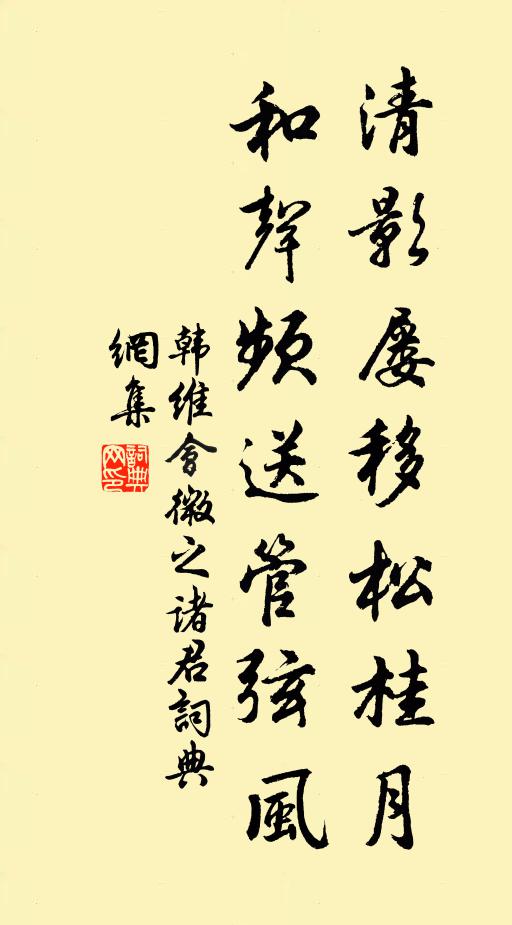 清影屡移松桂月
和聲頻送管弦風
韩維會微之诸君詞典
網集
詞典
网印